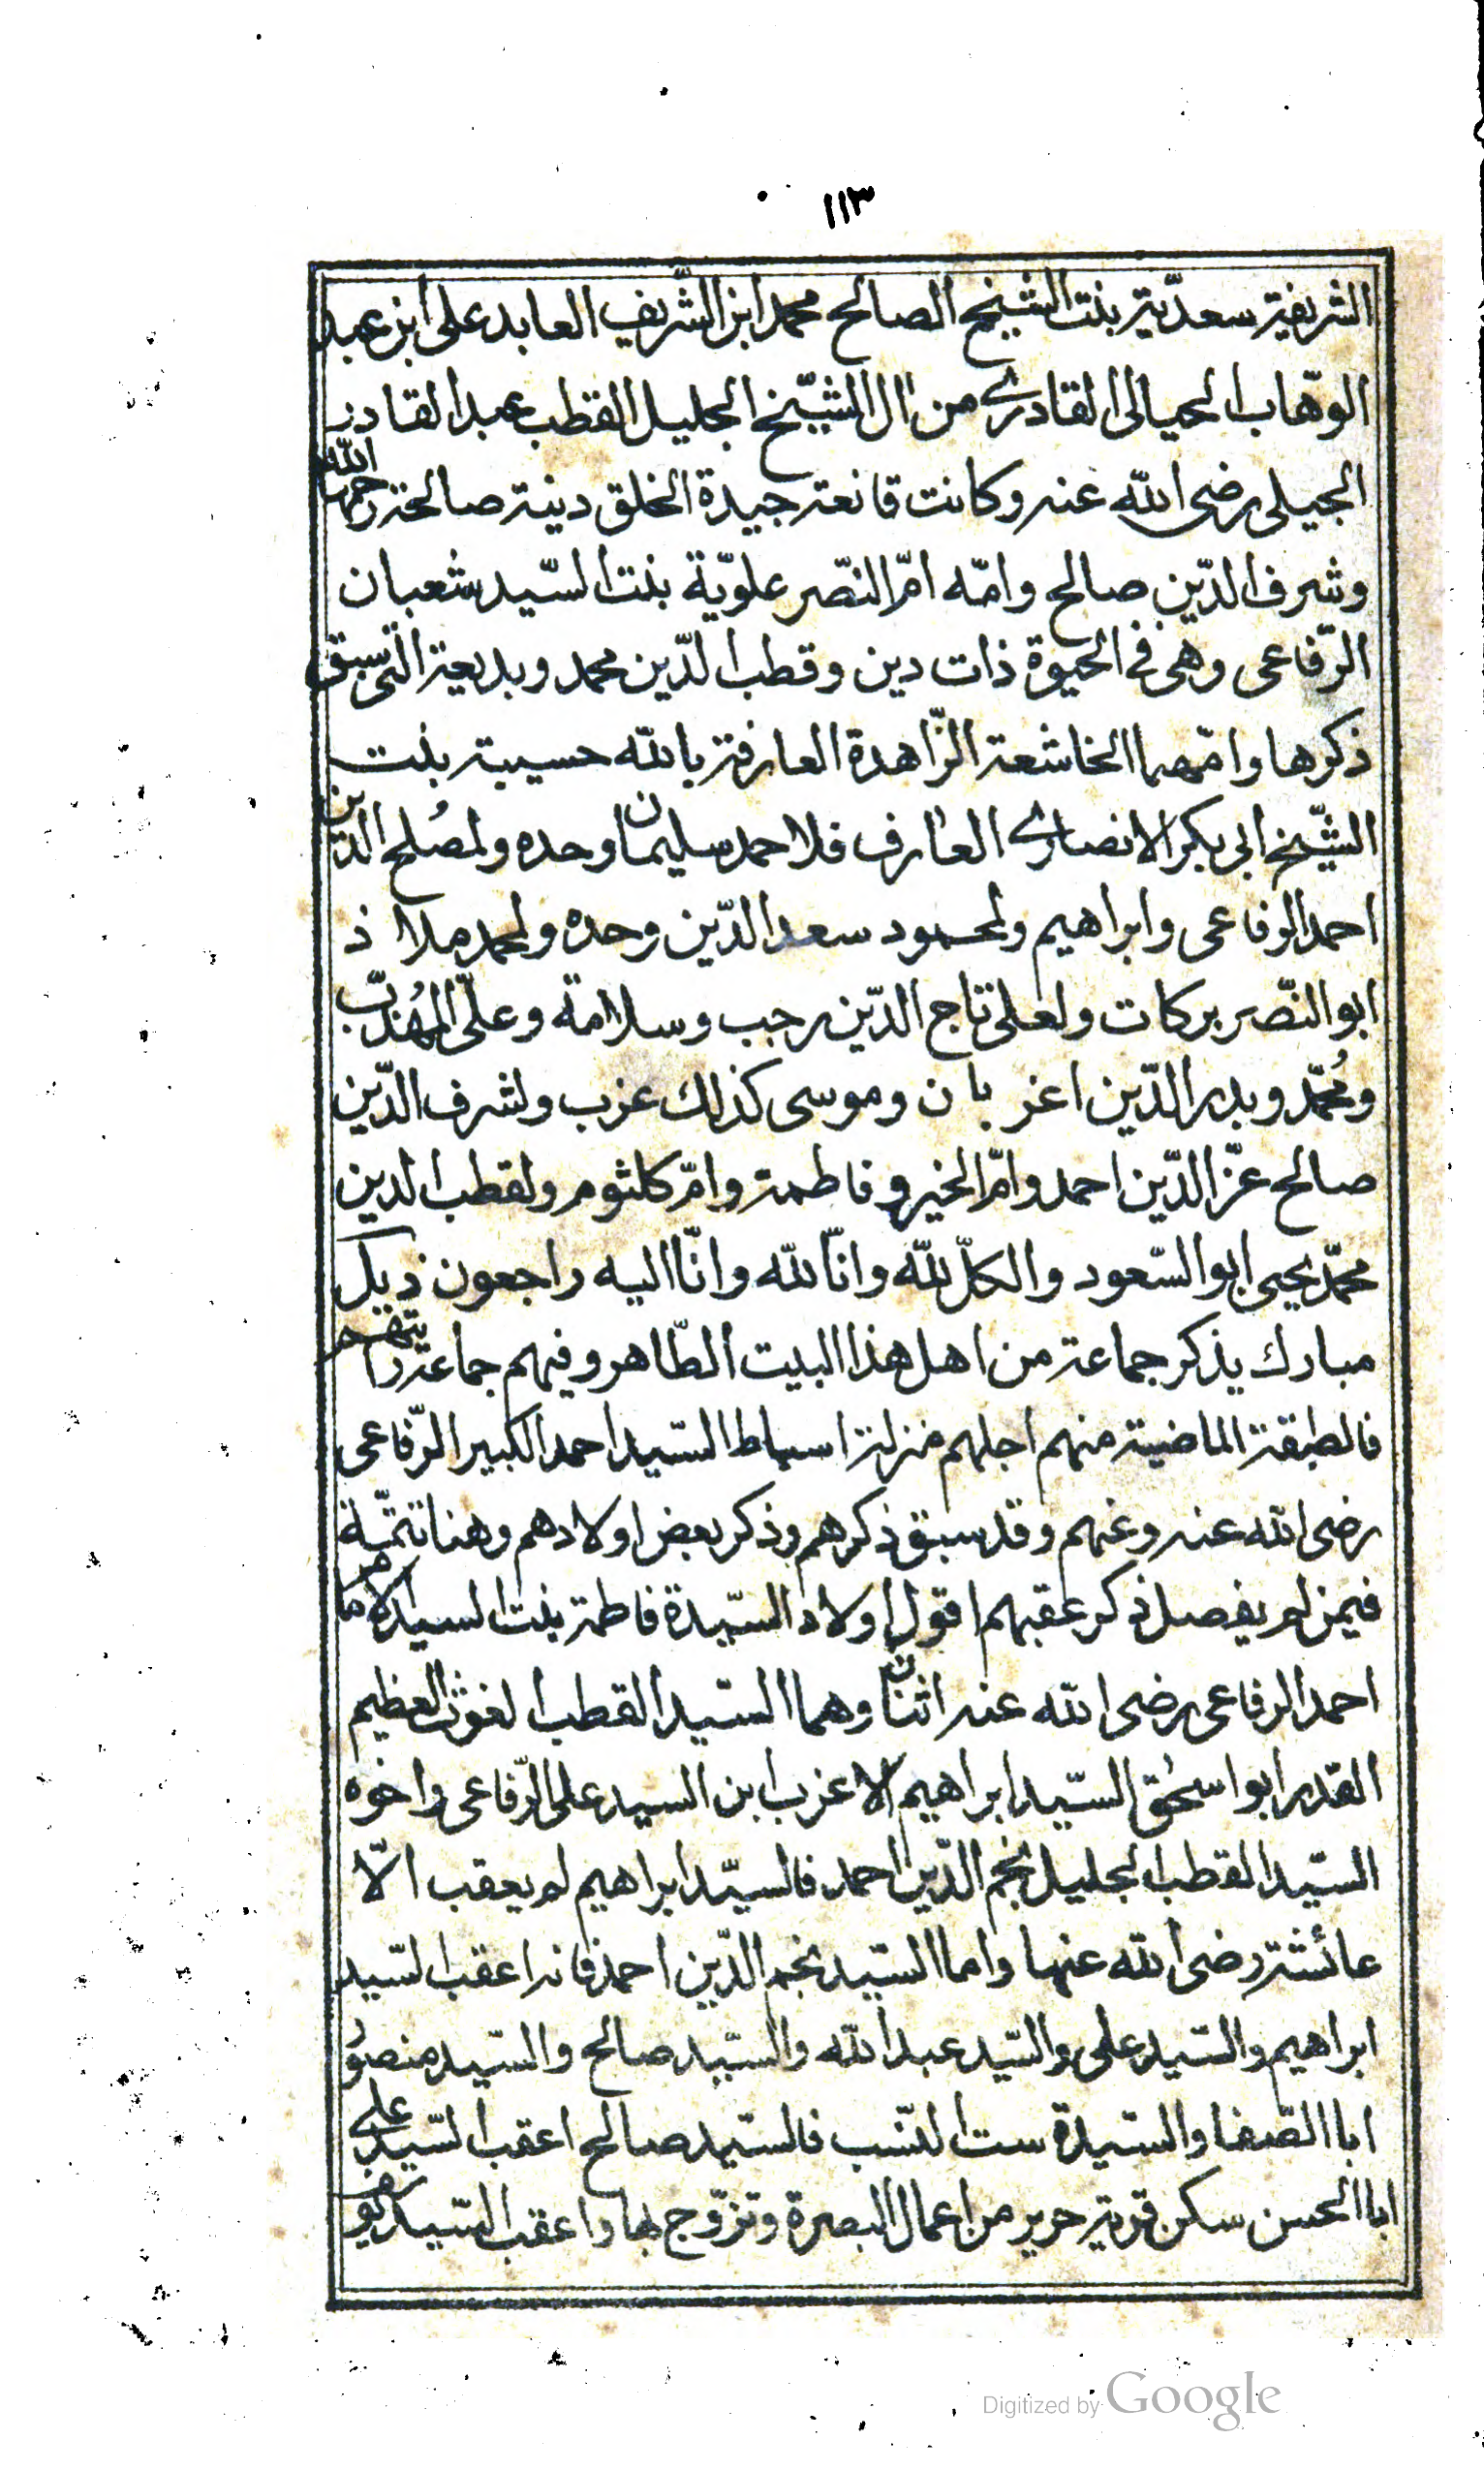 ١١٣
الشريفة سعديّة بنت الشيخ الصالح محمد ابن الشّريف العابد على ابن عبد
الوهّاب الحيالى القادرى من ال الشّيخ الجليل القطب عبد القادر
الجيلى رضى الله عنه وكانت قانعة جيدة الخلق دينة صالحة رحمها الله
وشرف الدّين صالح وامّه امّ النّصر علويّة بنت السّيد شعبان
الرّفاعى وهى فى الحيوة ذات دين وقطب الدّين محمد وبديعة التى سبق
ذكرها وامّهما الخاشعة الزّاهدة العارفة بالله حسيبة بنت
الشّيخ ابى بكر الانصارى العارف فلاحمد سليمان وحده ولمصُلح الدين
احمد الرفاعى وابراهيم ولمحمود سعد الدّين وحده ولمحمد ملاذ
ابو النّصر بركات ولعلى تاج الدّين رجب وسلامة وعلىّ المهُذّب
ومُحمّد وبدر الدّين اعزبان وموسى كذلك عزب ولشرف الدّين
صالح عزّ الدّين احمد وامّ الخير وفاطمة وامّ كلثوم ولقطب الدين
محمّد يحيى ابو السّعود والكلّ لله وانّا لله وانّا اليه راجعون ذيل
مبارك يذكر جماعة من اهل هذا البيت الطّاهر وفيهم جماعة رايتهم
فالطبقة الماضية منهم اجلهم منزلة اسباط السّيد احمد الكبير الرّفاعى
رضى الله عنه وعنهم وقد سبق ذكرهم وذكر بعض اولادهم وهنا تتمّة
فيمن لم يفصل ذكر عقبهم اقول اولاد السّيدة فاطمة بنت السيد الامام
احمد الرفاعى رضى الله عنه اثنان وهما السّيد القطب الغوث العظيم
القدر ابو اسحٰق السّيد ابراهيم الاعزب ابن السيد على الرّفاعى واخوه
السّيد القطب الجليل نجم الدّين احمد فالسيّد ابراهيم لم يعقب الّا
عائشة رضى الله عنها واما السّيد نجم الدّين احمد فانه اعقب السّيد
ابراهيم والسّيد على والسّيد عبد الله والسّيد صالح والسّيد منصوُر
ابا الصّفا والسّيدة ست النّسب فالسّيد صالح اعقب السّيد على
ابا الحسن سكن قرية حرير من اعمال البصرة وتزوّج بها واعقب السّيد
Digitized by Google